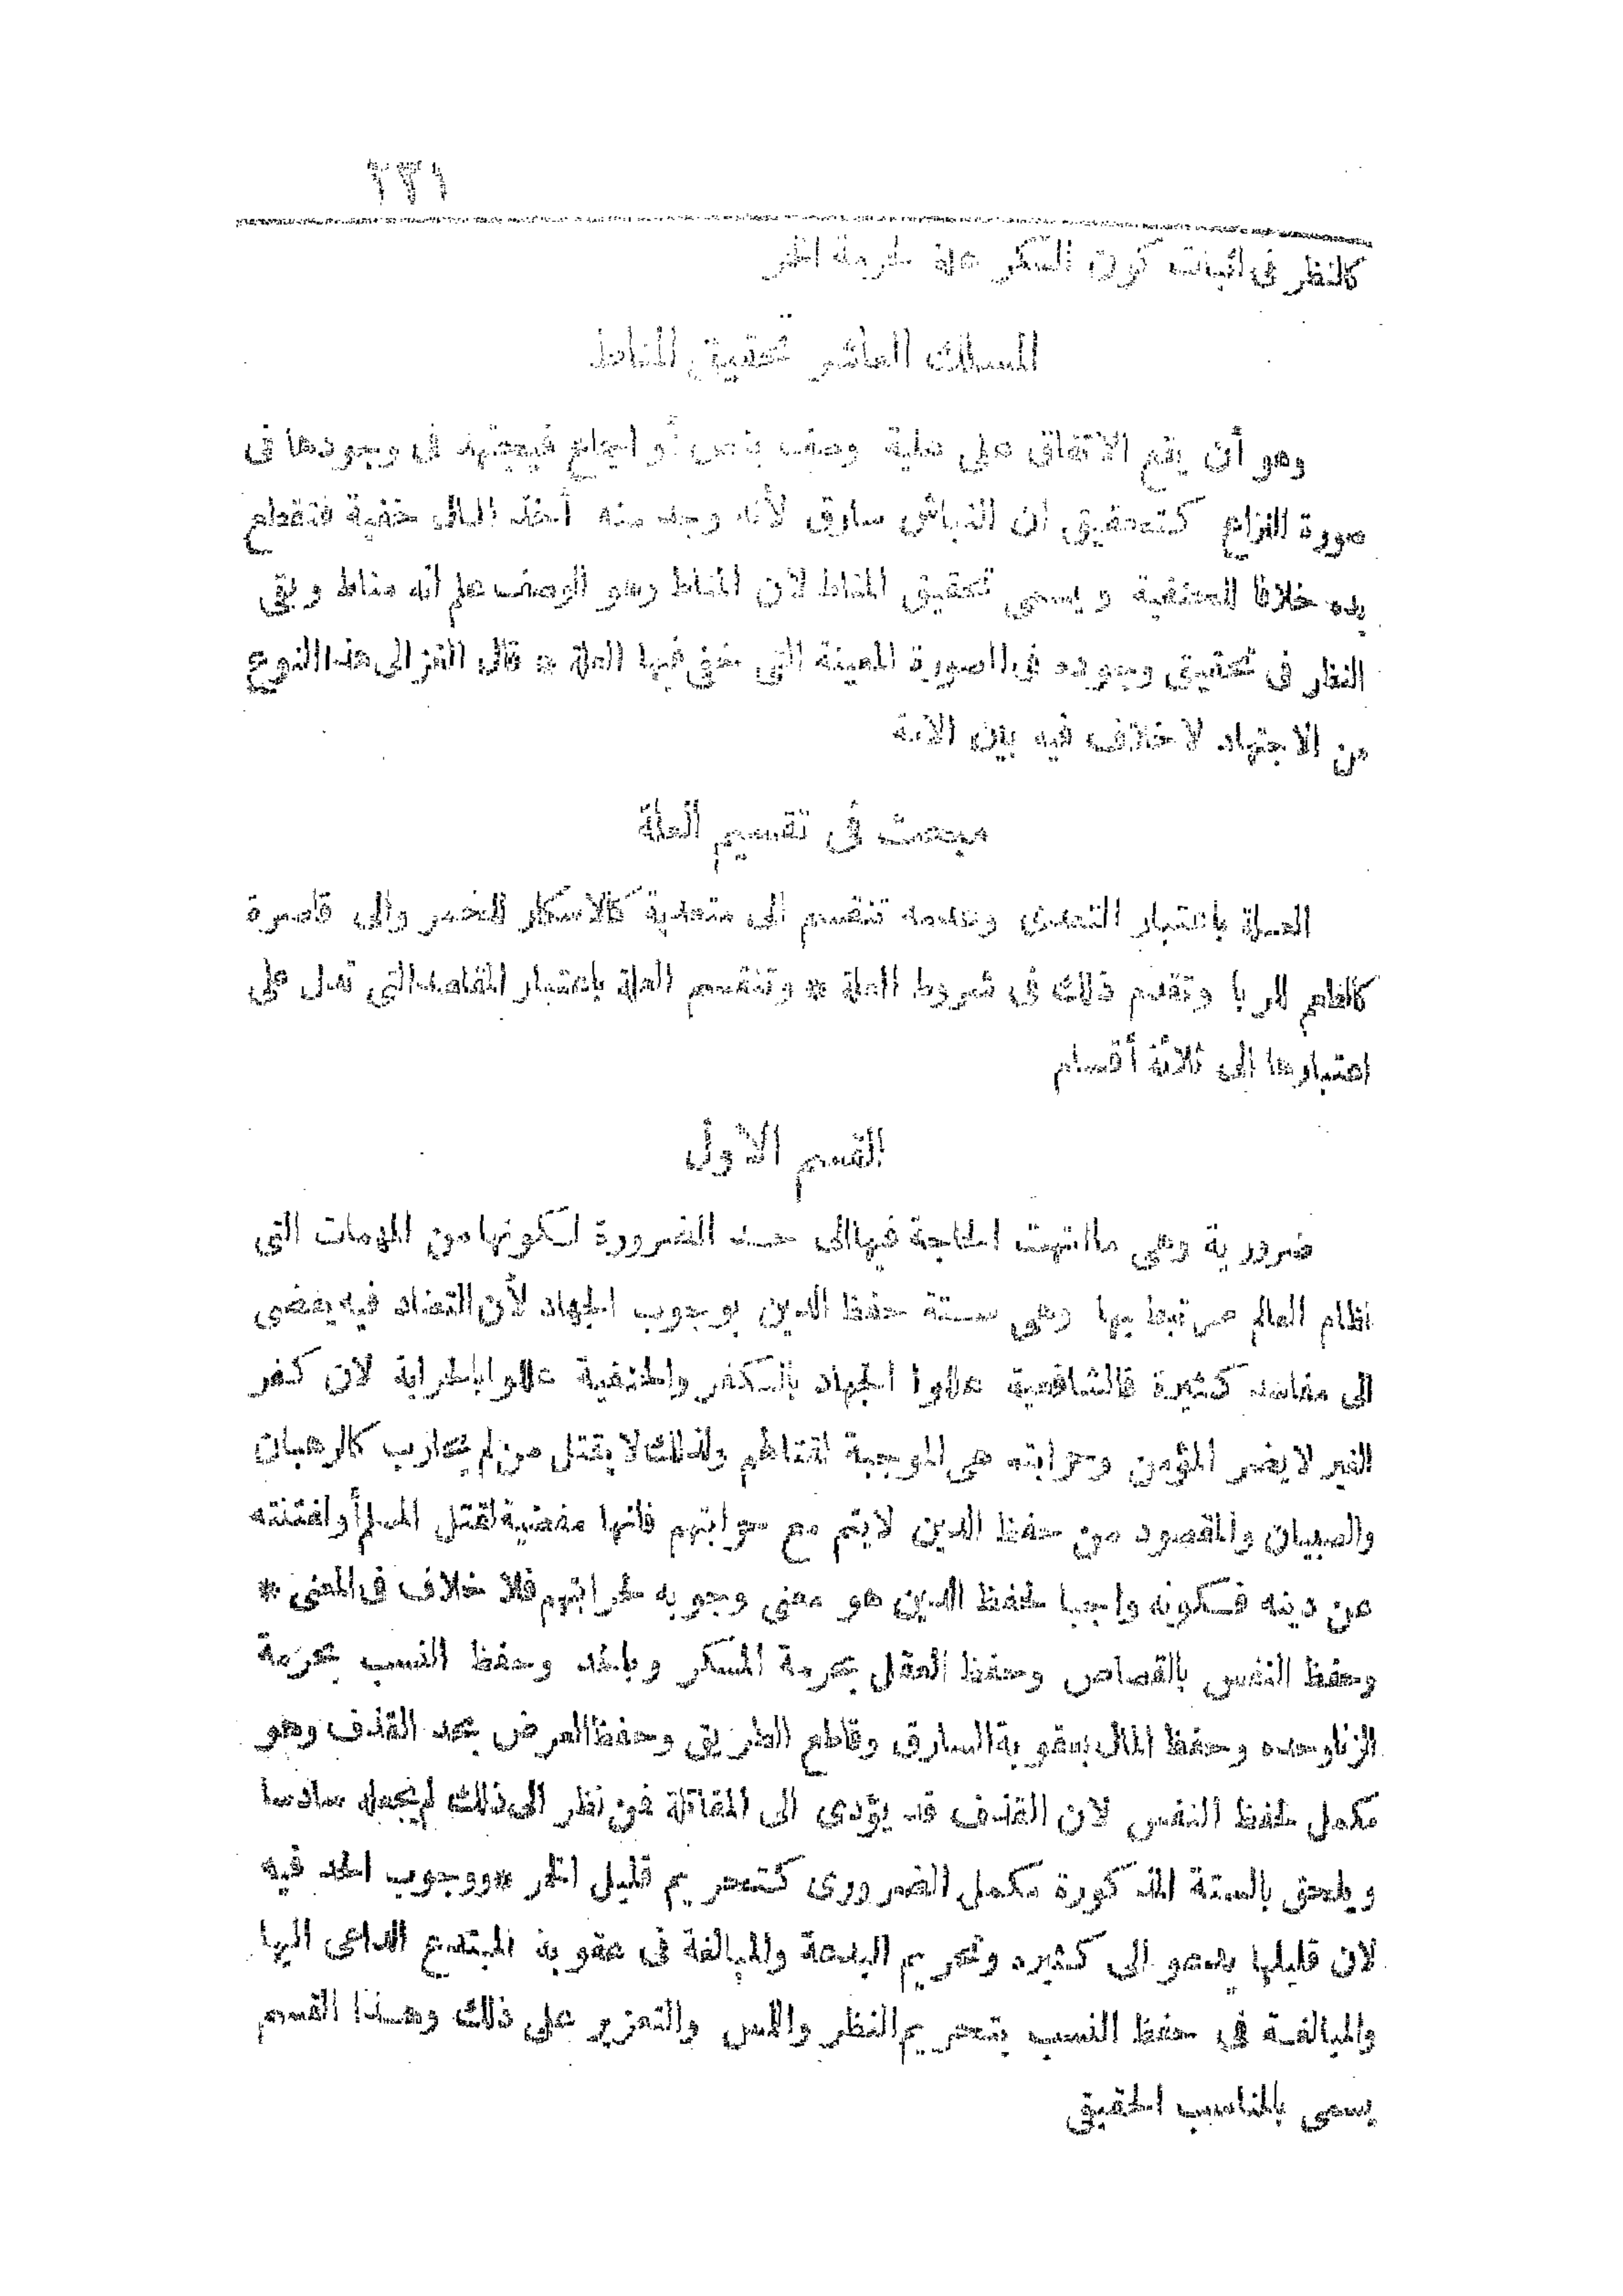 ٢٣١
كالنظر فى اثبات كون السكر علة لحرمة الخمر
المسلك العاشر تحقيق المناط
وهو أن يقع الاتفاق على علية وصف بنص أو اجماع فيجتهد فى وجودها فى
صورة النزاع كتحقيق ان النباش سارق لأنه وجد منه أخذ المال خفية فتقطع
يده خلافا للحنفية ويسمى تحقيق المناط لان المناط وهو الوصف علم انه مناط وبقى
النظر فى تحقيق وجوده فى الصورة المعينة التى خفى فيها العلة * قال الغزالى هذا النوع
من الاجتهاد لا خلاف فيه بين الامة
مبحث فى تقسيم العلة
العلة باعتبار التعدى وعدمه تنقسم الى متعدية كالاسكار للخمر والى قاصرة
كالطعم للربا وتقدم ذلك فى شروط العلة * وتنقسم العلة باعتبار المقاصد التى تدل على
اعتبارها الى ثلاثة أقسام
القسم الاول
ضرورية وهى ما انتهت الحاجة فيها الى حد الضرورة لكونها من المهمات التى
نظام العالم مرتبط بها وهى ستة حفظ الدين بوجوب الجهاد لأن التضاد فيه يفضى
الى مفاسد كثيرة فالشافعية عللوا الجهاد بالكفر والحنفية عللوا بالحرابة لان كفر
الغير لا يضر المؤمن وحرابته هى الموجبة لقتالهم ولذلك لا يقتل من لم يحارب كالرهبان
والصبيان والمقصود من حفظ الدين لا يتم مع حرابتهم فانها مفضية لقتل المسلم أو لفتنته
عن دينه فكونه واجبا لحفظ الدين هو معنى وجوبه لحرابتهم فلا خلاف فى المعنى *
وحفظ النفس بالقصاص وحفظ العقل بحرمة المسكر وبالحد وحفظ النسب بحرمة
الزنا وحده وحفظ المال بعقوبة السارق وقاطع الطريق وحفظ العرض بحد القذف وهو
مكمل لحفظ النفس لان القذف قد يؤدى الى المقاتلة فمن نظر الى ذلك لم يجعله سادسا
ويلحق بالستة المذكورة مكمل الضرورى كتحريم قليل الخمر * ووجوب الحد فيه
لان قليلها يدعو الى كثيره وتحريم البدعة والمبالغة فى عقوبة المبتدع الداعى اليها
والمبالغة فى حفظ النسب بتحريم النظر واللمس والتعزير على ذلك وهذا القسم
يسمى بالمناسب الحقيقى